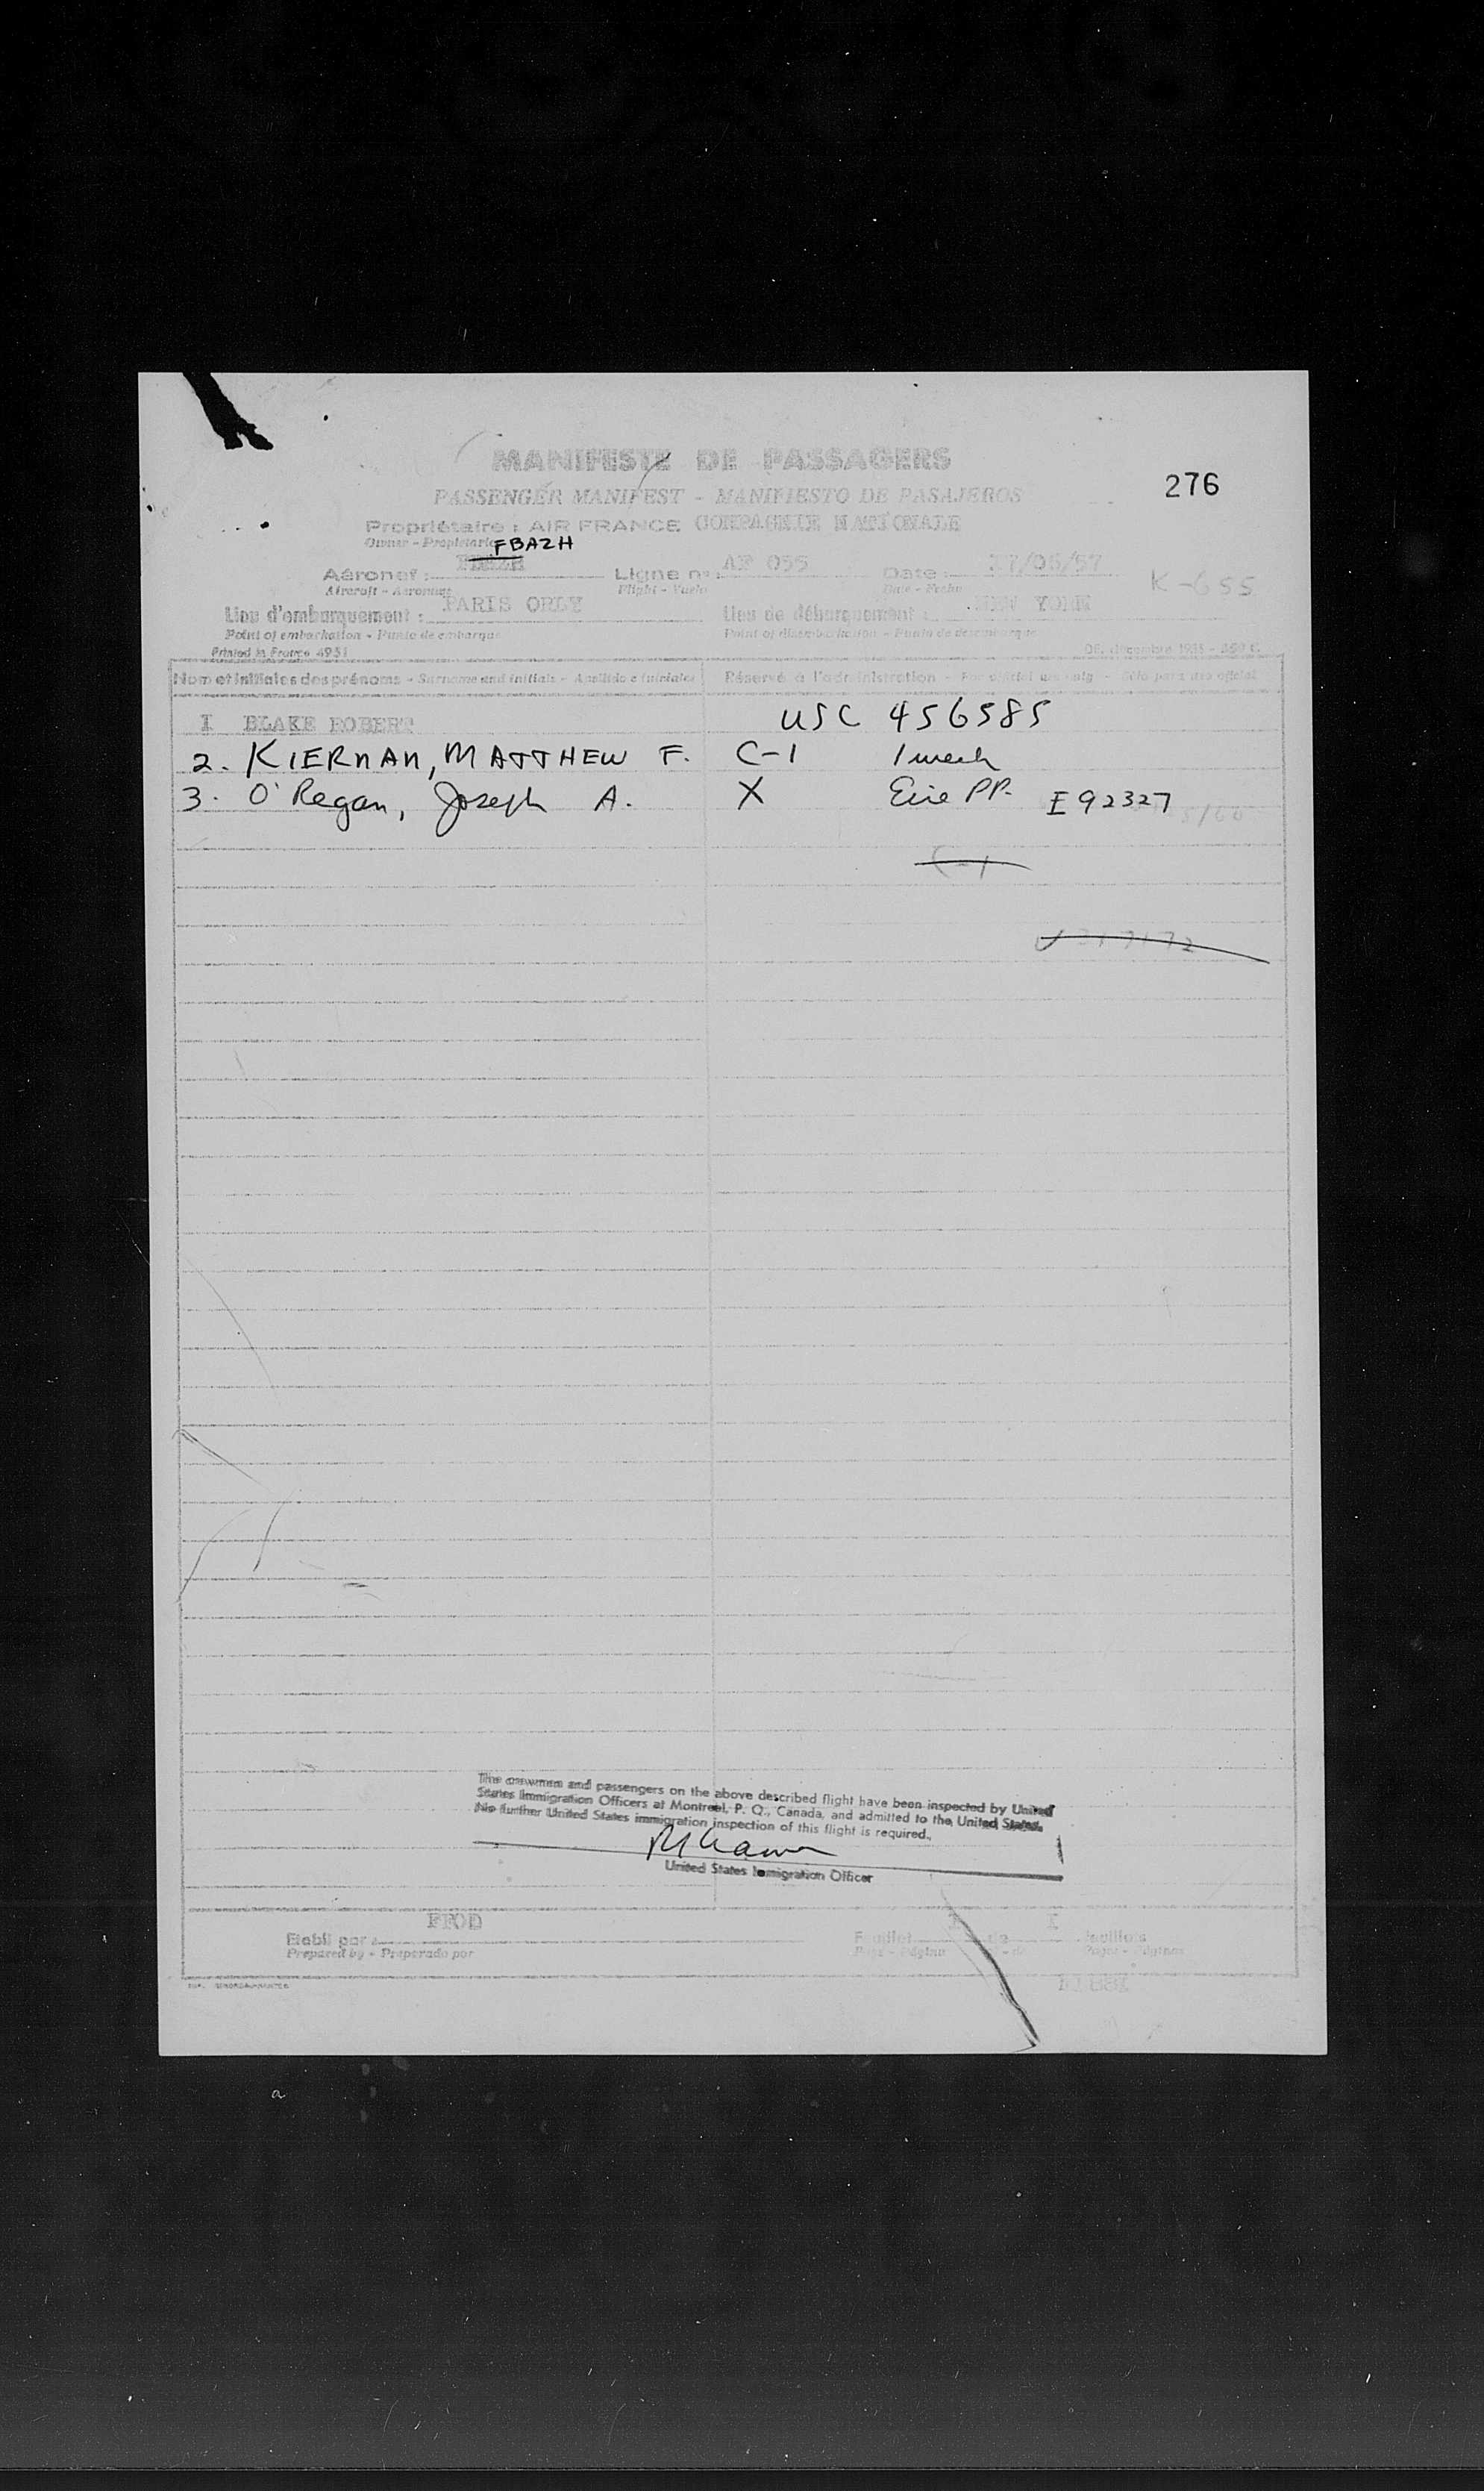 MANIFESTE DE PASSAGERS
PASSENGER MANIFEST - MANIFIESTO DE PASAJEROS
276
Propriétaire : AIR FRANCE COMPAGNIE NATIONALE
Owner - Propietario
FBAZH
Aéronef : Ligne n° : AF 055 Date : 27/06/57
Aircraft - Aeronave Flight - Vuelo Date - Fecha
K-655
Lieu d'embarquement : PARIS ORLY Lieu de débarquement : NEW YORK
Point of embarkation - Punto de embarque Point of disembarkation - Punto de desembarque
Printed in France 4951
Nom et initiales des prénoms - Surname and initials - Apellido e iniciales Réservé à l'administration - For official use only - Sólo para uso oficial
I BLAKE ROBERT USC 456585
2. KIERNAN, MATTHEW F. C-1 1 week
3. O'Regan, Joseph A. X Eire PP. E92327
C-1
The crewmen and passengers on the above described flight have been inspected by United
States Immigration Officers at Montreal, P. Q., Canada, and admitted to the United States.
No further United States immigration inspection of this flight is required.
United States Immigration Officer
FFOD
Etabli par : Feuillet I de I feuillets
Prepared by - Preparado por Page - Página Pages - Páginas